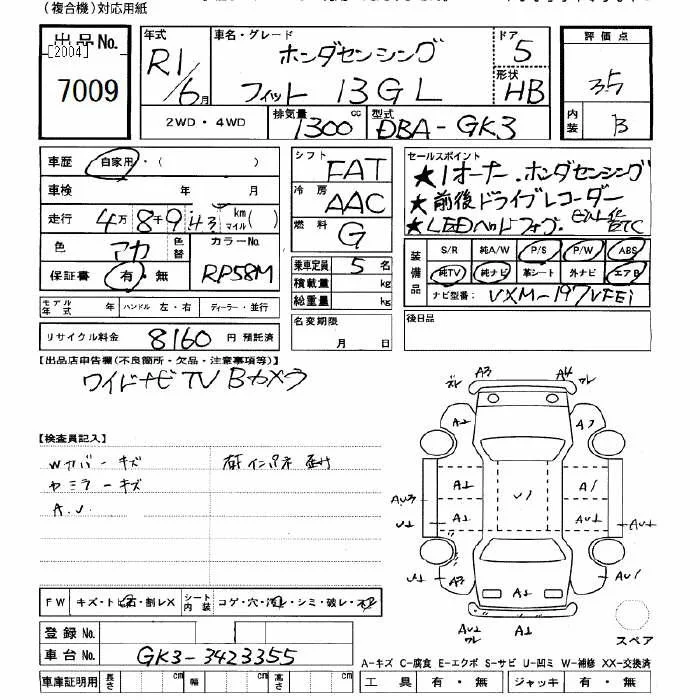 (複合機)対応用紙
出品No. 年式 車名・グレード ホンダセンシング ドア 5 評価点
[2004] 7009 R1/6月 フィット 13GL 形状 HB 3.5
2WD・4WD 排気量 1300cc 型式 DBA-GK3 内装 B
車歴 自家用・( )
車検 年 月
走行 4万8千943 km マイル( )
色 アカ 色替 カラーNo.
保証書 有・無 RP58M
モデル年式 年 ハンドル 左・右 ディーラー・並行
リサイクル料金 8160 円 預託済
シフト FAT
冷房 AAC
燃料 G
乗車定員 5 名
積載量 kg
総重量 kg
名変期限
月 日
セールスポイント
★1オーナー.ホンダセンシング
★前後ドライブレコーダー
★LEDヘッドフォグ. ETC
装備品 S/R 純A/W P/S P/W ABS
純TV 純ナビ 革シート 外ナビ エアB
ナビ型番: VXM-197VFEi
後日品
【出品店申告欄(不良箇所・欠品・注意事項等)】
ワイドナビ TV Bカメラ
【検査員記入】
Wカバーキズ
ヤミラーキズ
A.U.
A3 A4
A1
A1 U1 A1
AU3 A1 AU1 AU1
U1
U1 A3 AU1
AU1 AU1
AU2 U1
スペア
FW キズ・ト石・割レX シート内装 コゲ・穴・汚レ・シミ・破レ・
登録No.
車台No. GK3-3423355
車庫証明用 長さ cm 幅 cm 高さ cm
A-キズ C-腐食 E-エクボ S-サビ U-凹ミ W-補修 XX-交換済
工具 有・無 ジャッキ 有・無